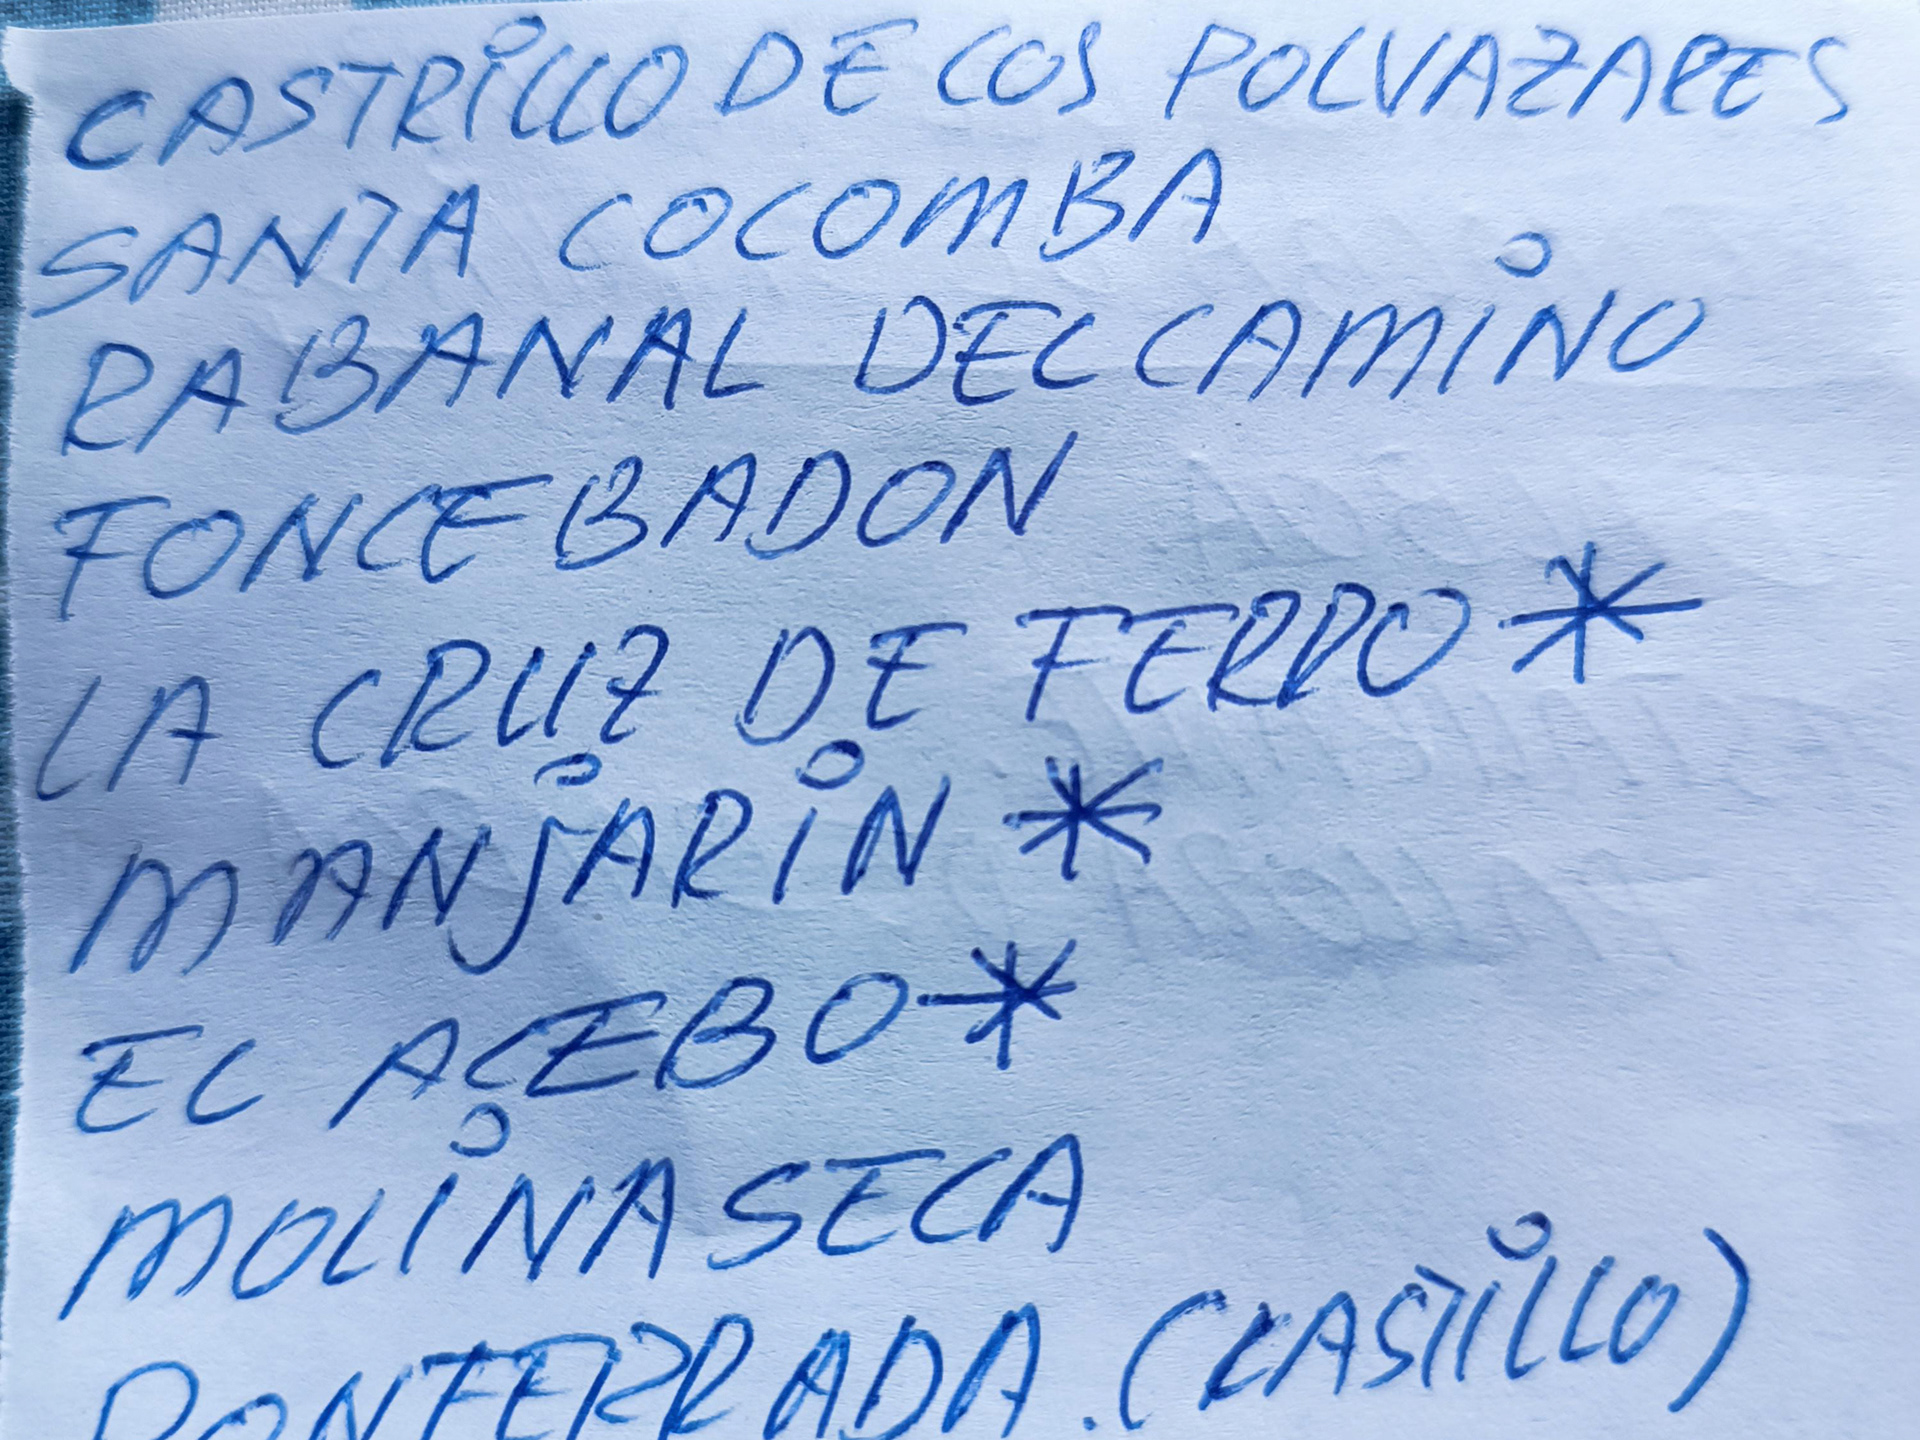 CASTRILLO DE LOS POLVAZARES
SANTA COLOMBA
RABANAL DEL CAMINO
FONCEBADON
LA CRUZ DE FERRO *
MANJARIN *
EL ACEBO *
MOLINASECA
PONFERRADA. (CASTILLO)